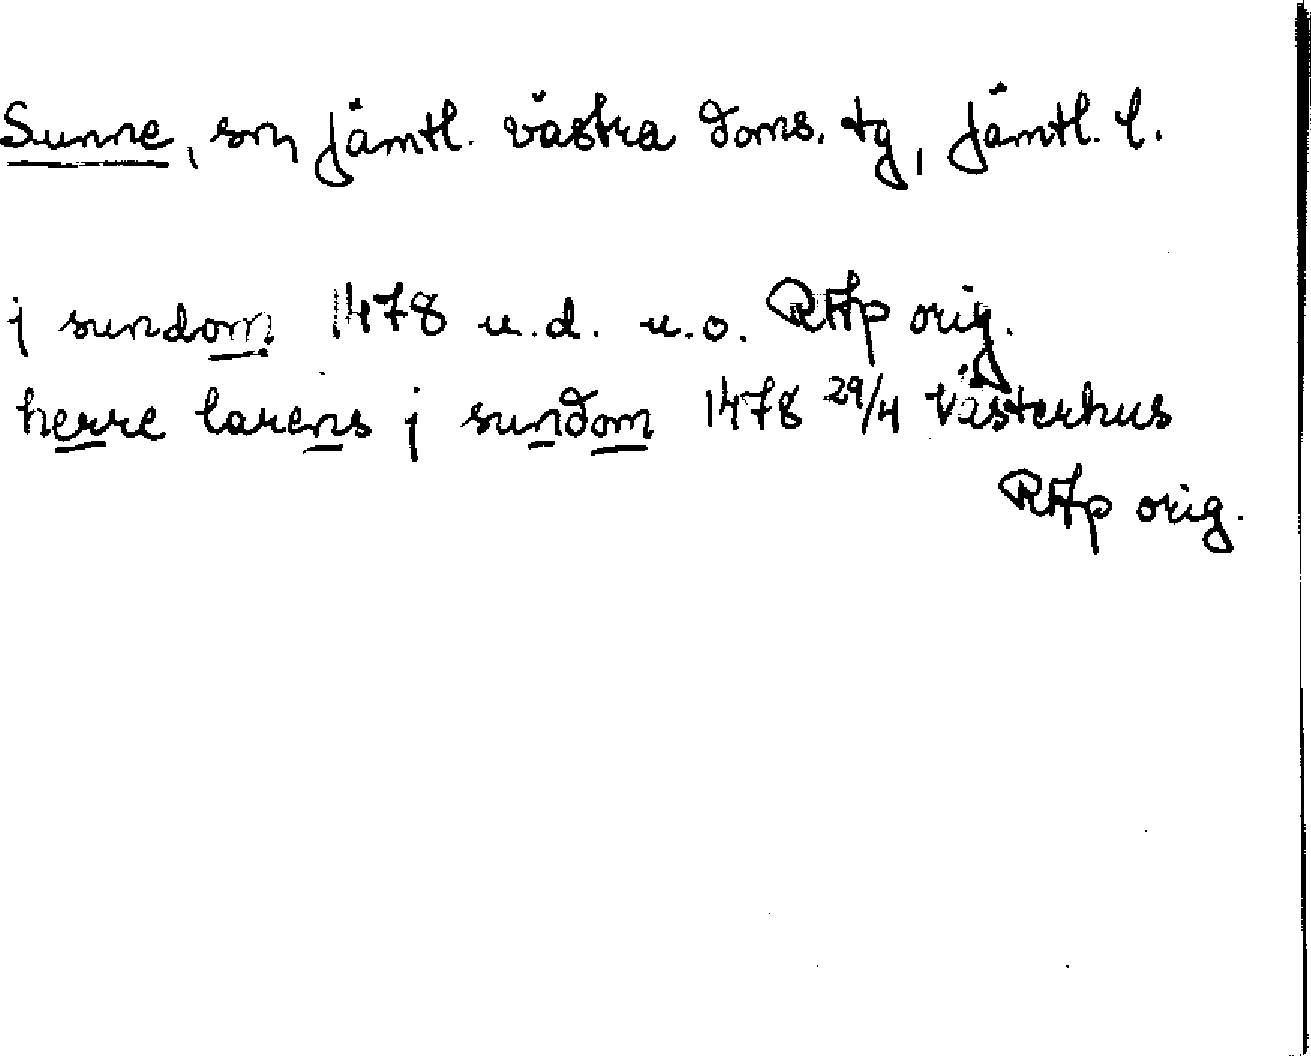 Sunne, sn Jämtl. västra doms. tg, Jämtl. l.
j sundom 1478 u.d. u.o. RAp orig.
herre larens j sundom 1478 29/4 Västerhus
RAp orig.